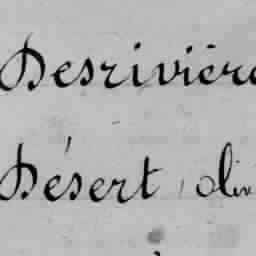 Desrivière
Désert, oliv